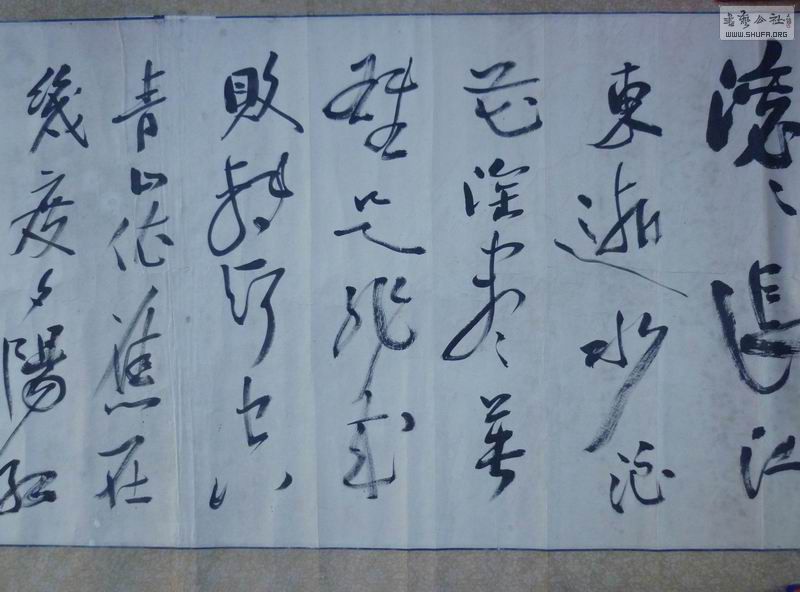 滚〻長江
東逝水浪
花淘尽英
雄是非成
敗轉頭空
青山依舊在
幾度夕陽紅
書藝公社
WWW.SHUFA.ORG